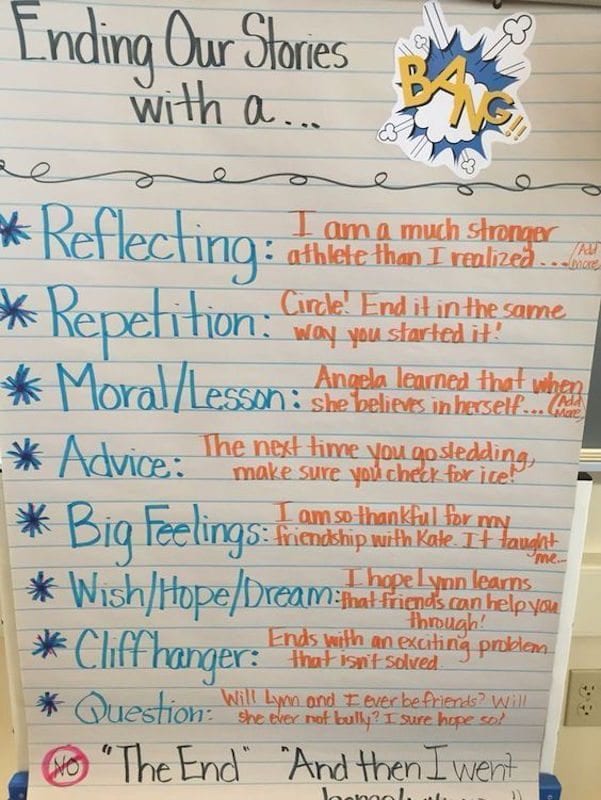 Ending Our Stories
with a...
BANG!!
* Reflecting: I am a much stronger
athlete than I realized... (Add more)
* Repetition: Circle! End it in the same
way you started it!
* Moral/Lesson: Angela learned that when
she believes in herself... (Add More)
* Advice: The next time you go sledding,
make sure you check for ice!
* Big Feelings: I am so thankful for my
friendship with Kate. It taught
me...
* Wish/Hope/Dream: I hope Lynn learns
that friends can help you
through!
* Cliffhanger: Ends with an exciting problem
that isn't solved.
* Question: Will Lynn and I ever be friends? Will
she ever not bully? I sure hope so!
NO "The End" "And then I went